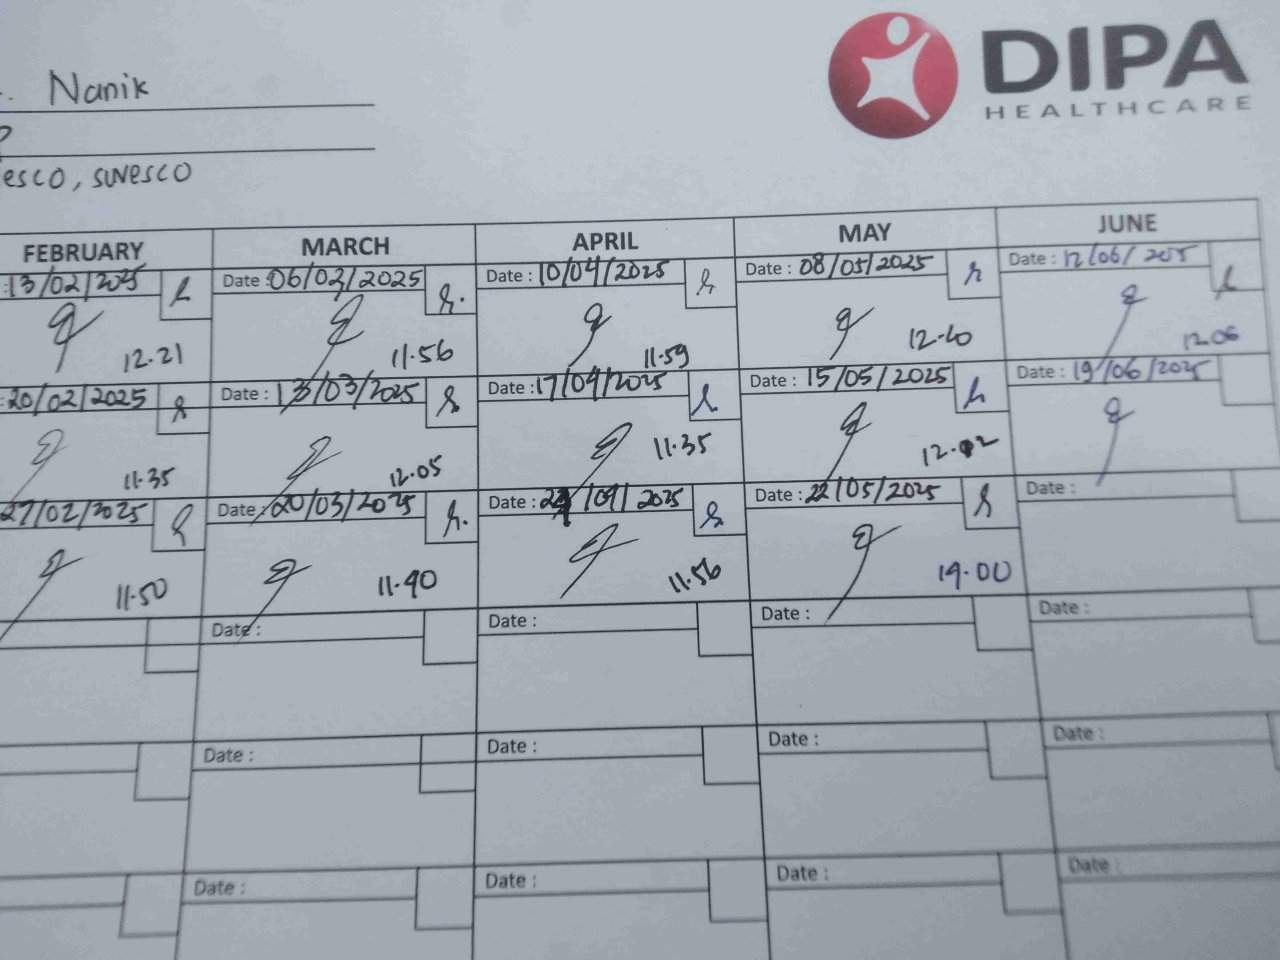 DIPA
HEALTHCARE
Nanik
esco, suvesco
FEBRUARY MARCH APRIL MAY JUNE
:13/02/2025 Date :06/03/2025 Date : 10/04/2025 Date : 08/05/2025 Date : 12/06/
12.21 11.56 11.59 12.10 12.06
:20/02/2025 Date : 13/03/2025 Date : 17/04/2025 Date : 15/05/2025 Date : 19/06/2025
11.35 12.05 11.35 12.02
27/02/2025 Date : 20/03/2025 Date : 24/04/2025 Date : 22/05/2025 Date :
11.50 11.40 11.56 14.00
Date : Date : Date : Date :
Date : Date : Date : Date :
Date : Date : Date : Date :